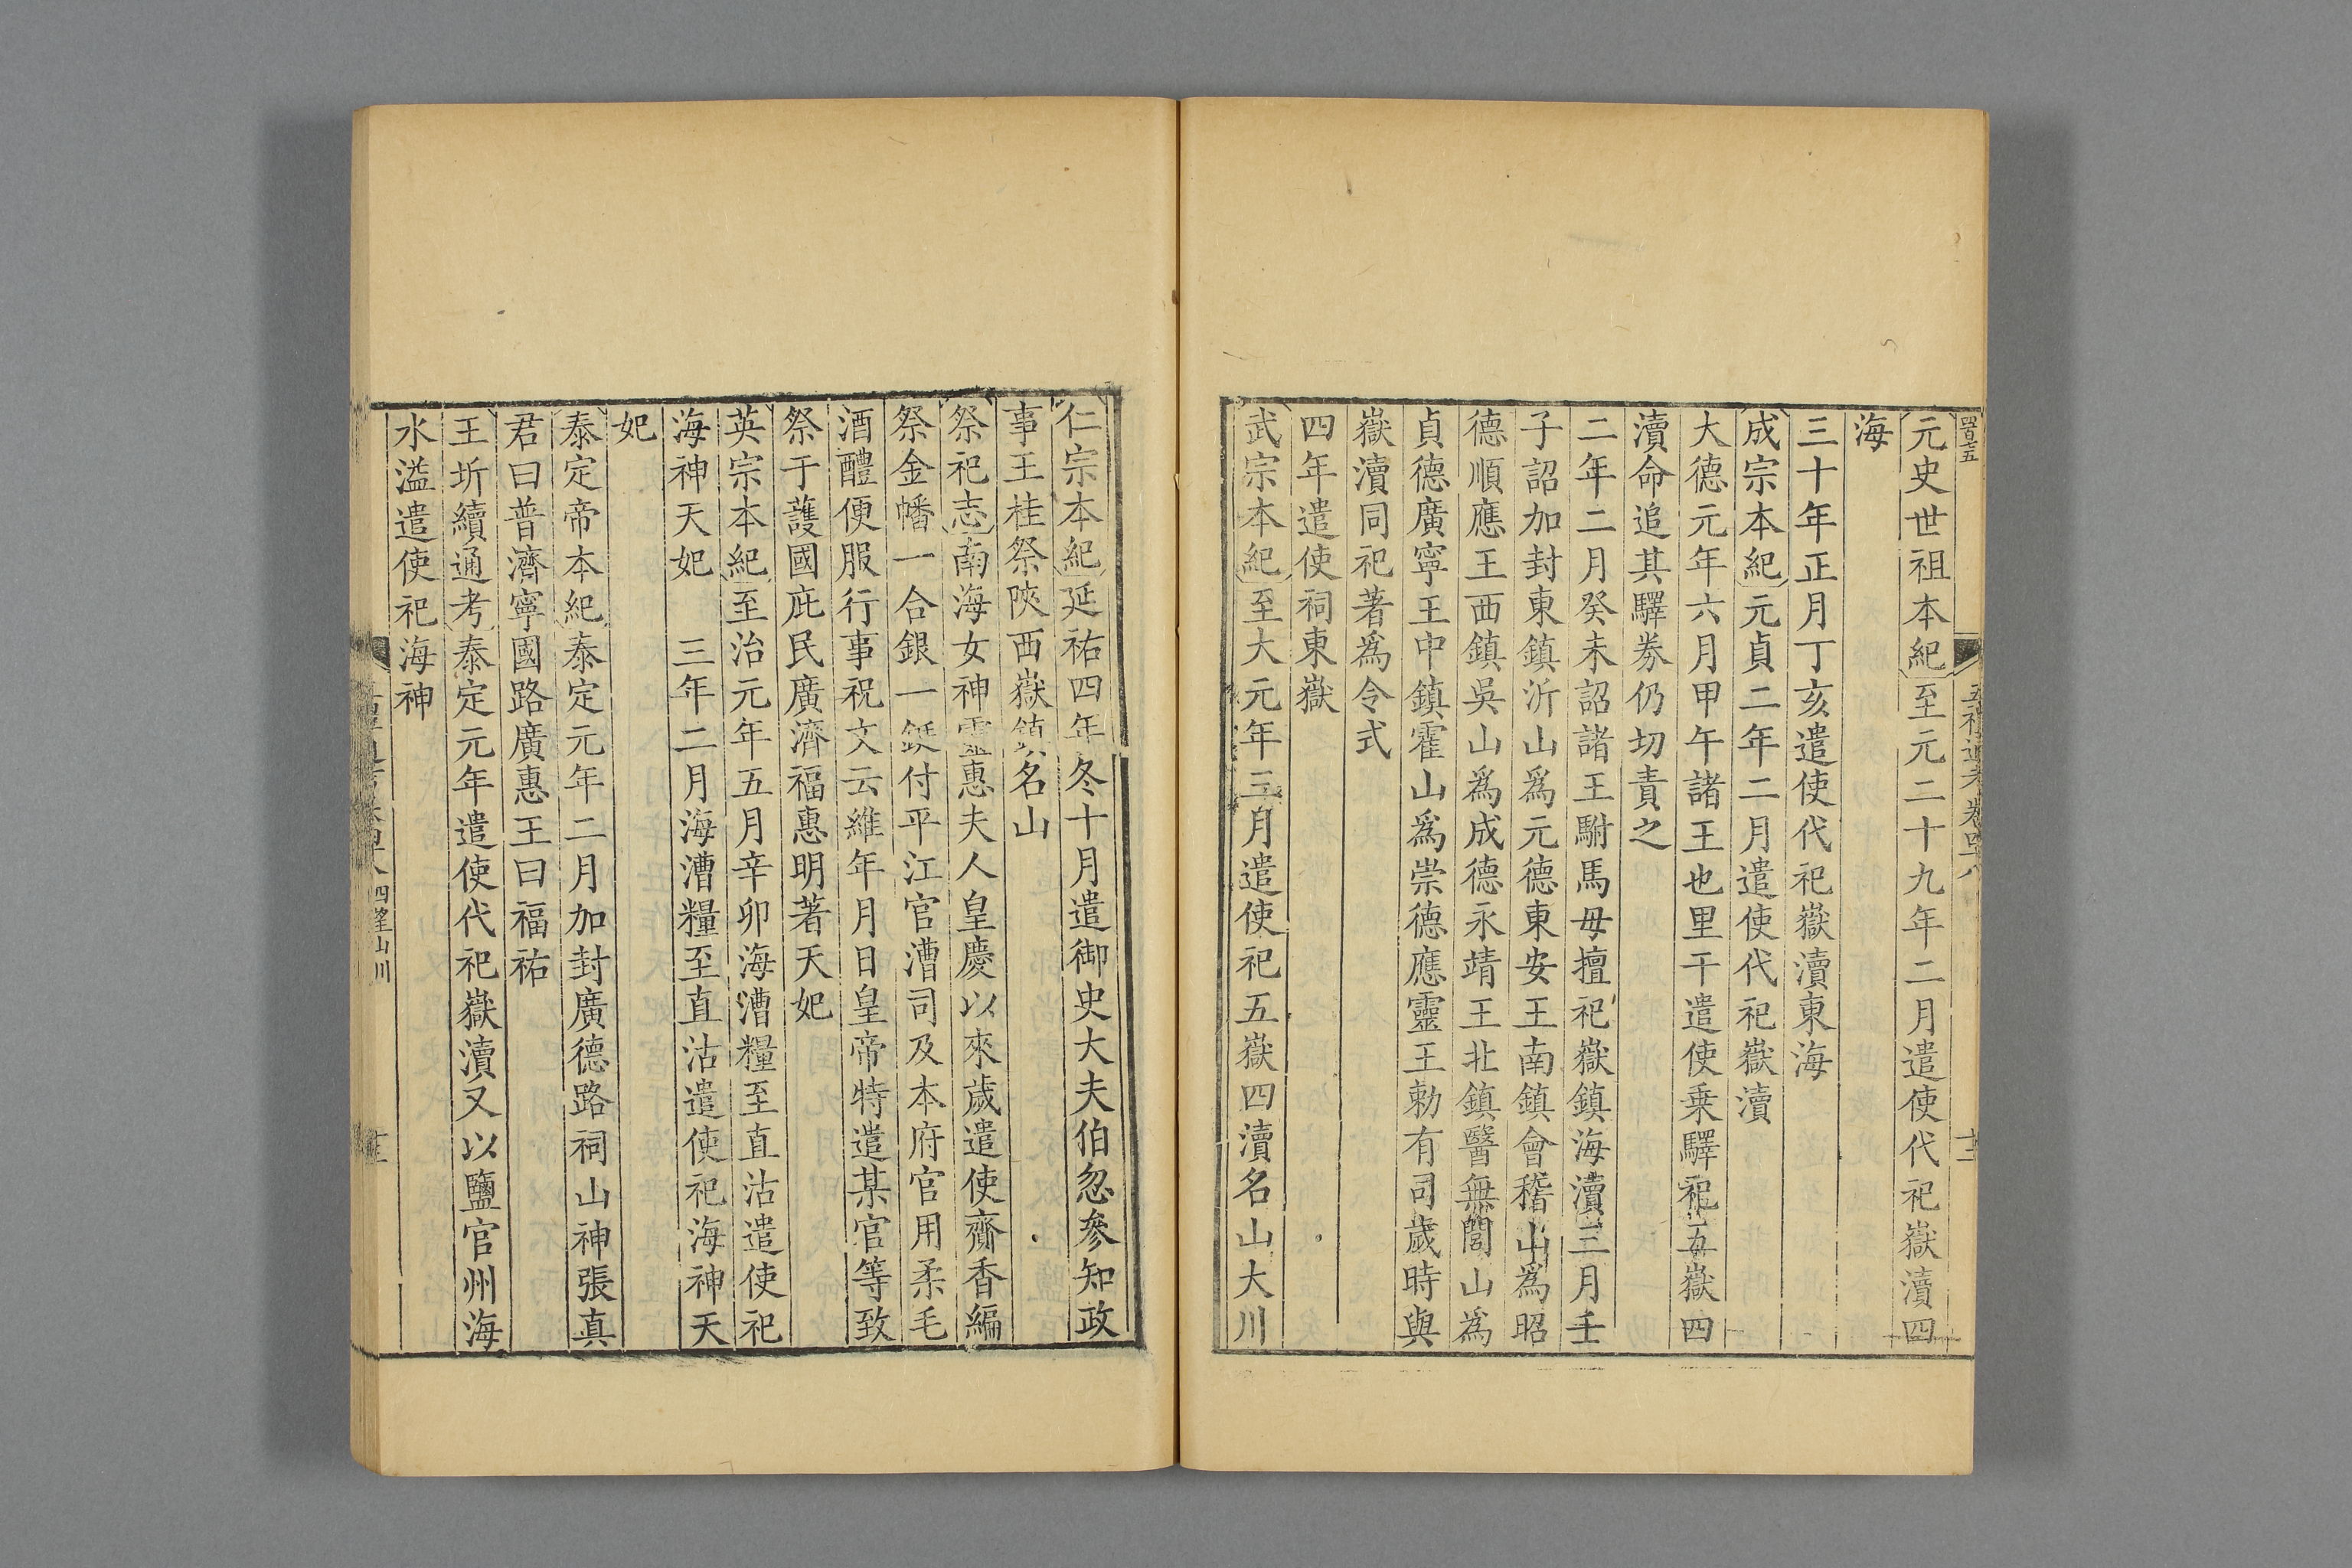 元史世祖本紀至元二十九年二月遣使代祀嶽瀆四
海
三十年正月丁亥遣使代祀嶽瀆東海
成宗本紀元貞二年二月遣使代祀嶽瀆
大德元年六月甲午諸王也里干遣使乗驛祀五嶽四
瀆命追其驛劵仍切責之
二年二月癸未詔諸王駙馬毋擅祀嶽鎮海瀆三月壬
子詔加封東鎮沂山為元德東安王南鎮會稽山為昭
德順應王西鎮吳山為成德永靖王北鎮醫無閭山為
貞德廣寧王中鎮霍山為崇德應靈王勅有司歲時與
嶽瀆同祀著為令式
四年遣使祠東嶽
武宗本紀至大元年三月遣使祀五嶽四瀆名山大川
仁宗本紀延祐四年冬十月遣御史大夫伯忽參知政
事王桂祭陜西嶽鎮名山
祭祀志南海女神靈惠夫人皇慶以來歲遣使齎香編
祭金幡一合銀一鋌付平江官漕司及本府官用柔毛
酒醴便服行事祝文云維年月日皇帝特遣某官等致
祭于護國庇民廣濟福惠明著天妃
英宗本紀至治元年五月辛卯海漕糧至直沽遣使祀
海神天妃　三年二月海漕糧至直沽遣使祀海神天
妃
泰定帝本紀泰定元年二月加封廣德路祠山神張真
君曰普濟寧國路廣惠王曰福祐
王圻續通考泰定元年遣使代祀嶽瀆又以鹽官州海
水溢遣使祀海神
四望山川